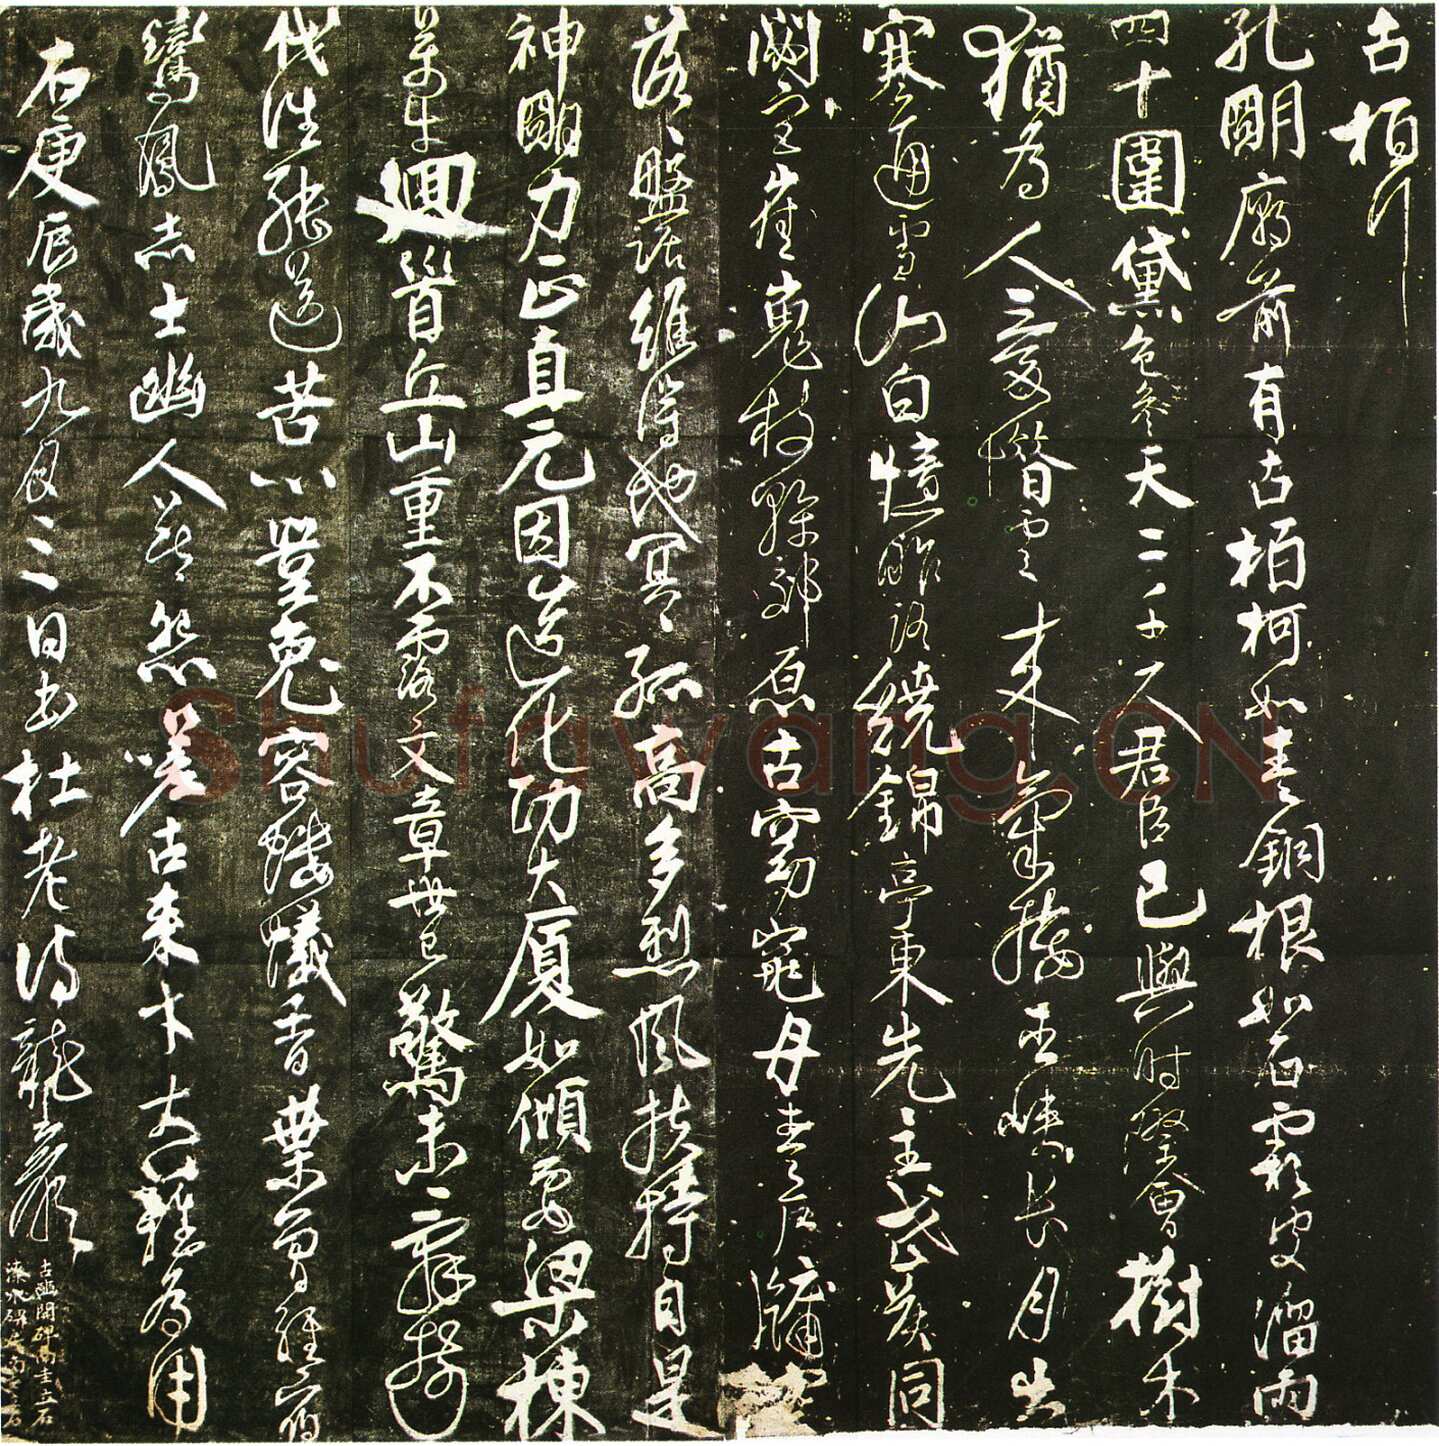 古柏行
孔明廟前有古柏柯如青銅根如石霜皮溜雨
四十圍黛色參天二千尺君臣已與時際會樹木
猶為人愛惜雲來氣接巫峽長月出
寒通雪山白憶昨路繞錦亭東先主武侯同
閟宮崔嵬枝幹郊原古窈窕丹青戶牖空
落落盤踞雖得地冥冥孤高多烈風扶持自是
神明力正直元因造化功大廈如傾要梁棟
萬牛迴首丘山重不露文章世已驚未辭剪
伐誰能送苦心豈免容螻蟻香葉曾經宿
鸞鳳志士幽人莫怨嗟古來材大難為用
右庚辰歲九月三日書杜老詩龍巖
古豳開碑高圭立石
Shufawang.CN